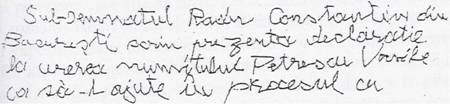 Subsemnatul Radu Constantin din
București scriu prezenta declarație
la cererea numitului Petrescu Vasile
ca să-l ajute în procesul cu